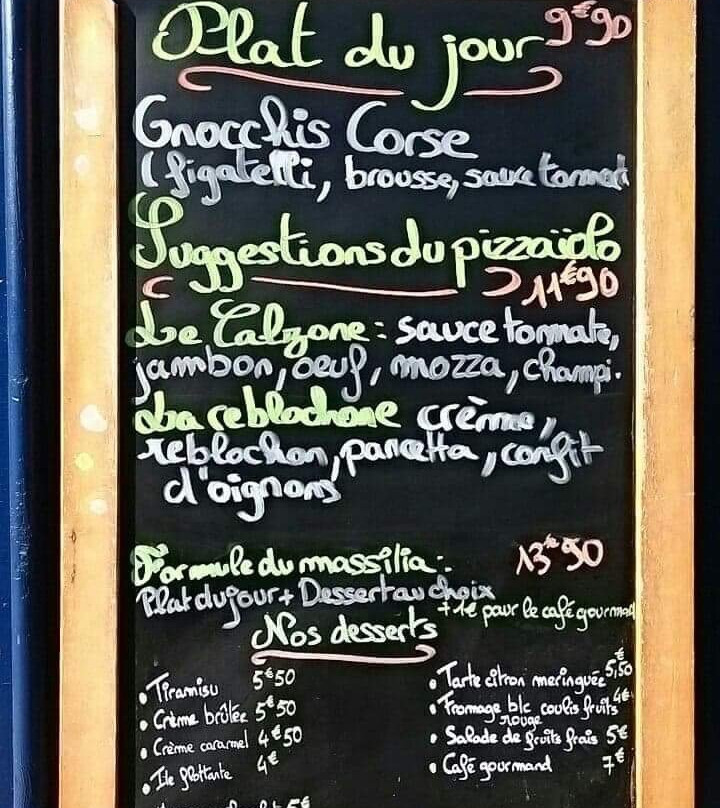 Plat du jour 9€90
Gnocchis Corse
(figatelli, brousse, sauce tomat
Suggestions du pizzaïolo
11€90
Le Calzone : sauce tomate,
jambon, oeuf, mozza, champi.
La reblochone crème,
reblochon, pancetta, confit
d'oignons
Formule du massilia : 13€90
Plat du jour + Dessert au choix
+1€ pour le café gourmand
Nos desserts
• Tiramisu 5€50
• Crème brûlée 5€50
• Crème caramel 4€50
• Ile flottante 4€
• Tarte citron meringuée 5,50€
• Fromage blc coulis fruits 4€
rouge
• Salade de fruits frais 5€
• Café gourmand 7€
5€